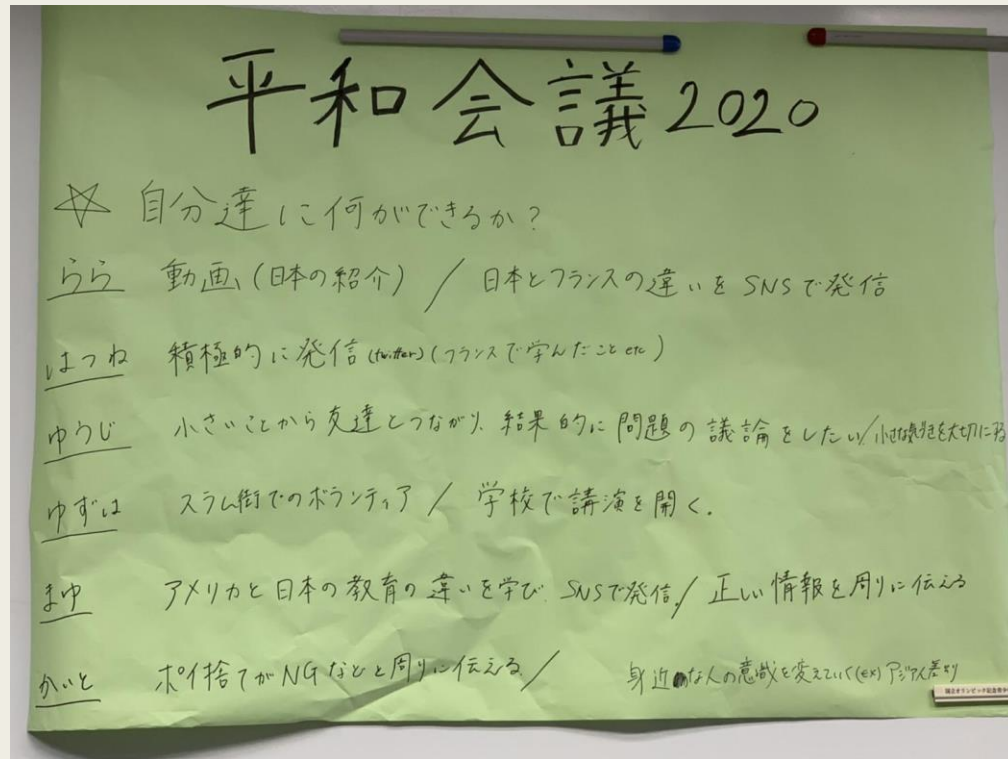 平和会議2020
☆ 自分達に何ができるか？
らら 動画（日本の紹介） / 日本とフランスの違いをSNSで発信
はつね 積極的に発信(twitter)(フランスで学んだことetc)
ゆうじ 小さいことから友達とつながり、結果的に問題の議論をしたい/小さな気づきを大切にする
ゆずは スラム街でのボランティア / 学校で講演を開く.
まゆ アメリカと日本の教育の違いを学び SNSで発信 / 正しい情報を周りに伝える
かいと ポイ捨てがNGなどと周りに伝える / 身近な人の意識を変えていく(ex)アジア人差別